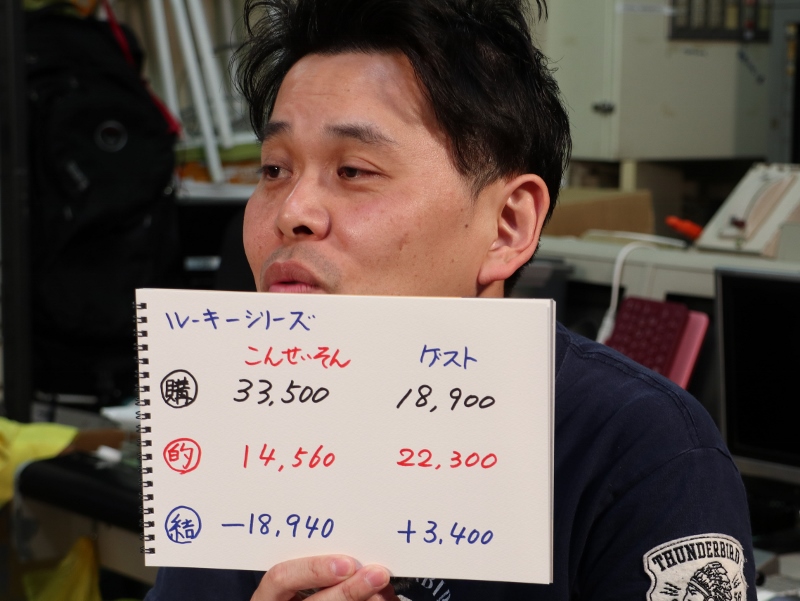 ルーキーシリーズ
こんせいそん ゲスト
購 33,500 18,900
的 14,560 22,300
結 -18,940 +3,400
THUNDERBIRD